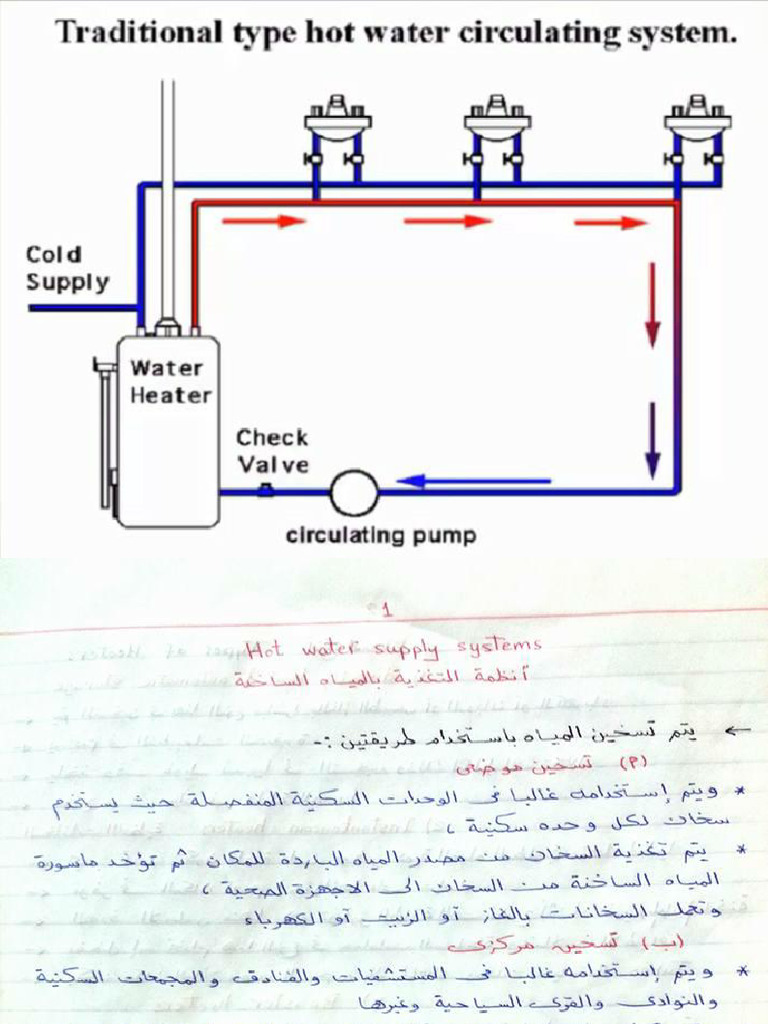 Traditional type hot water circulating system.
Cold
Supply
Water
Heater
Check
Valve
circulating pump
1
Hot water supply systems
أنظمة التغذية بالمياه الساخنة
← يتم تسخين المياه باستخدام طريقتين :-
(أ) تسخين موضعى
* ويتم إستخدامه غالبا فى الوحدات السكنية المنفصلة حيث يستخدم
سخان لكل وحده سكنية ،
* يتم تغذية السخان من مصدر المياه الباردة للمكان ثم تؤخد ماسورة
المياه الساخنة من السخان الى الاجهزة الصحية ،
وتعمل السخانات بالغاز أو الزيت أو الكهرباء
(ب) تسخين مركزى
* ويتم إستخدامه غالبا فى المستشفيات والفنادق والمجمعات السكنية
والنوادى والقرى السياحية وغيرها